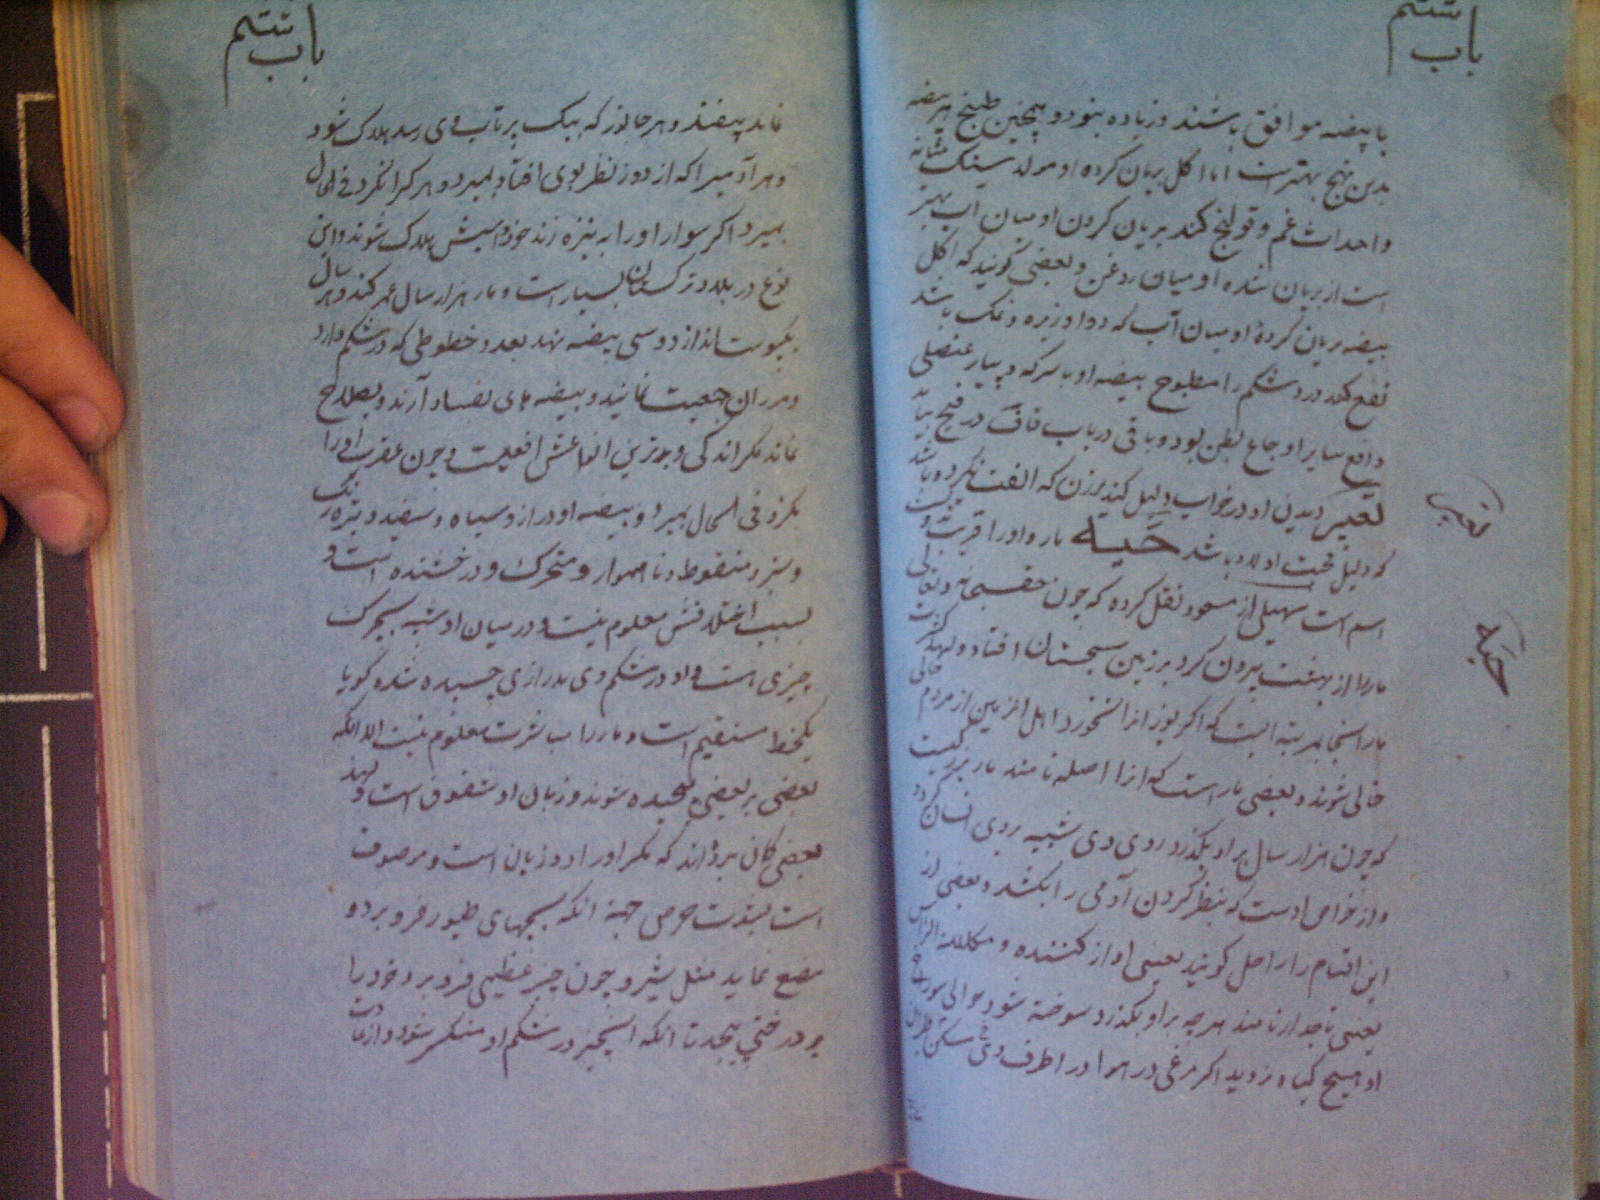 باب ششم
با بیضه موافق باشند و زیاده بنود و همچنین طبخ هر بیضه
بدین نهج بهتر است اما اکل بریان کرده او مولد سنک مثانه
و احداث غم و قولنج کند بریان کردن او میان آب بهتر
است از بریان شده او میان روغن و بعضی کویند که اکل
بیضه بریان کرده او میان آب که دوا و زیره و نمک باشد
نفع کند درد شکم را مطبوخ بیضه او با سرکه و پیاز عنصلی
دافع سایر اوجاع بطن بود و باقی در باب قاف در قبج بیاید
تعبیر دیدن او در خواب دلیل کند بر زن که الفت نکرد و باشد
که دلیل محبت اولاد باشد حیه مار و او را قریب دویست
اسم است سهیلی از مسعود نقل کرده که چون حقسبحانه و تعالی
مار را از بهشت بیرون کرد بر زمین سجستان افتاد و لهذا کثرت
مار اینجا بمرتبه ایست که اکر یوز انرا نخورد اهل انزمین از مردم خالی
خالی شوند و بعضی مار است که انرا اصله نامند مار بزرکیست
که چون هزار سال بر او بکذرد روی وی شبیه بروی انسان کردد
و از خواص اوست که بنظر کردن آدمی را بکشد و بعضی از
این اقسام را راحل کویند یعنی اواز کننده و مکلله الراس
یعنی تاجدار نامند هرچه بر او بکذرد سوخته شود حوالی سوراخ
او هیچ کیاه نروید اکر مرغی در هوا در اطرف وی
تعبیر
حیه
باب ششم
نماید بیفتد و هر جانور که بیک پرتاب وی رسد هلاک شود
و هر آدمیرا که از دور نظر بوی افتاد بمیرد و هر که را نکرد فی الحال
بمیرد اکر سوار او را به نیزه زند خود و اسبش هلاک شوند و این
نوع در بلاد ترکستان بسیار است و مار هزار سال عمر کند و هر سال
یکپوست اندازد و سی بیضه نهد بعدد خطوطی که در شکم دارد
و موران جمعیت نمایند و بیضه های بفساد آرند و بصلاح
نماند مکر اندکی و بدترین انواعش افعیست و چون عقرب او را
بکزد فی الحال بمیرد و بیضه او دراز و سیاه و سفید و تیره رنک
و سبز و منقوط و ناهموار و متحرک و درخشنده است و
سبب اختلافش معلوم نیست و در میان او شبه بچرک
چیزی است و او در شکم وی بدرازی چسبیده شده کویا
یکخط مستقیم است و مار را مباشرت معلوم نیست الا انکه
بعضی بر بعضی پیچیده شوند و زبان او مشقوق است و لهذا
بعضی کمان برده‌اند که مکر او را دو زبان است و موصوف
است بشدت حرص جهة انکه بچهای طیور فرو برد و
مضغ نماید مثل شیر و چون چیز عظیمی فرو برد خود را
بر درختی پیچد تا انکه انچیز در شکم او منکسر شود و از عادت